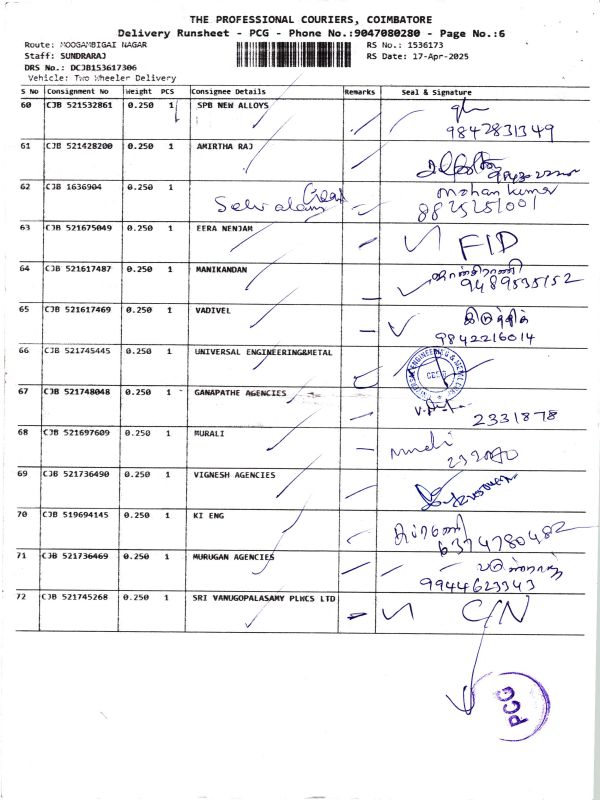 THE PROFESSIONAL COURIERS, COIMBATORE
Delivery Runsheet - PCG - Phone No.:9047080280 - Page No.:6
Route: MOOGAMBIGAI NAGAR RS No.: 1536173
Staff: SUNDRARAJ RS Date: 17-Apr-2025
DRS No.: DCJB153617306
Vehicle: Two Wheeler Delivery
S No Consignment No Weight PCS Consignee Details Remarks Seal & Signature
60 CJB 521532861 0.250 1 SPB NEW ALLOYS
9842831349
61 CJB 521428200 0.250 1 AMIRTHA RAJ
62 CJB 1636904 0.250 1 mohan kumar
Selvalaxmi 8825251001
63 CJB 521675049 0.250 1 EERA NENJAM
F1D
64 CJB 521617487 0.250 1 MANIKANDAN
9489535152
65 CJB 521617469 0.250 1 VADIVEL
9842216014
66 CJB 521745445 0.250 1 UNIVERSAL ENGINEERING&METAL
67 CJB 521748048 0.250 1 GANAPATHE AGENCIES
2331878
68 CJB 521697609 0.250 1 MURALI
murali
69 CJB 521736490 0.250 1 VIGNESH AGENCIES
70 CJB 519694145 0.250 1 KI ENG
6374780482
71 CJB 521736469 0.250 1 MURUGAN AGENCIES
9944623343
72 CJB 521745268 0.250 1 SRI VANUGOPALASAMY PLKCS LTD C/N
PCG